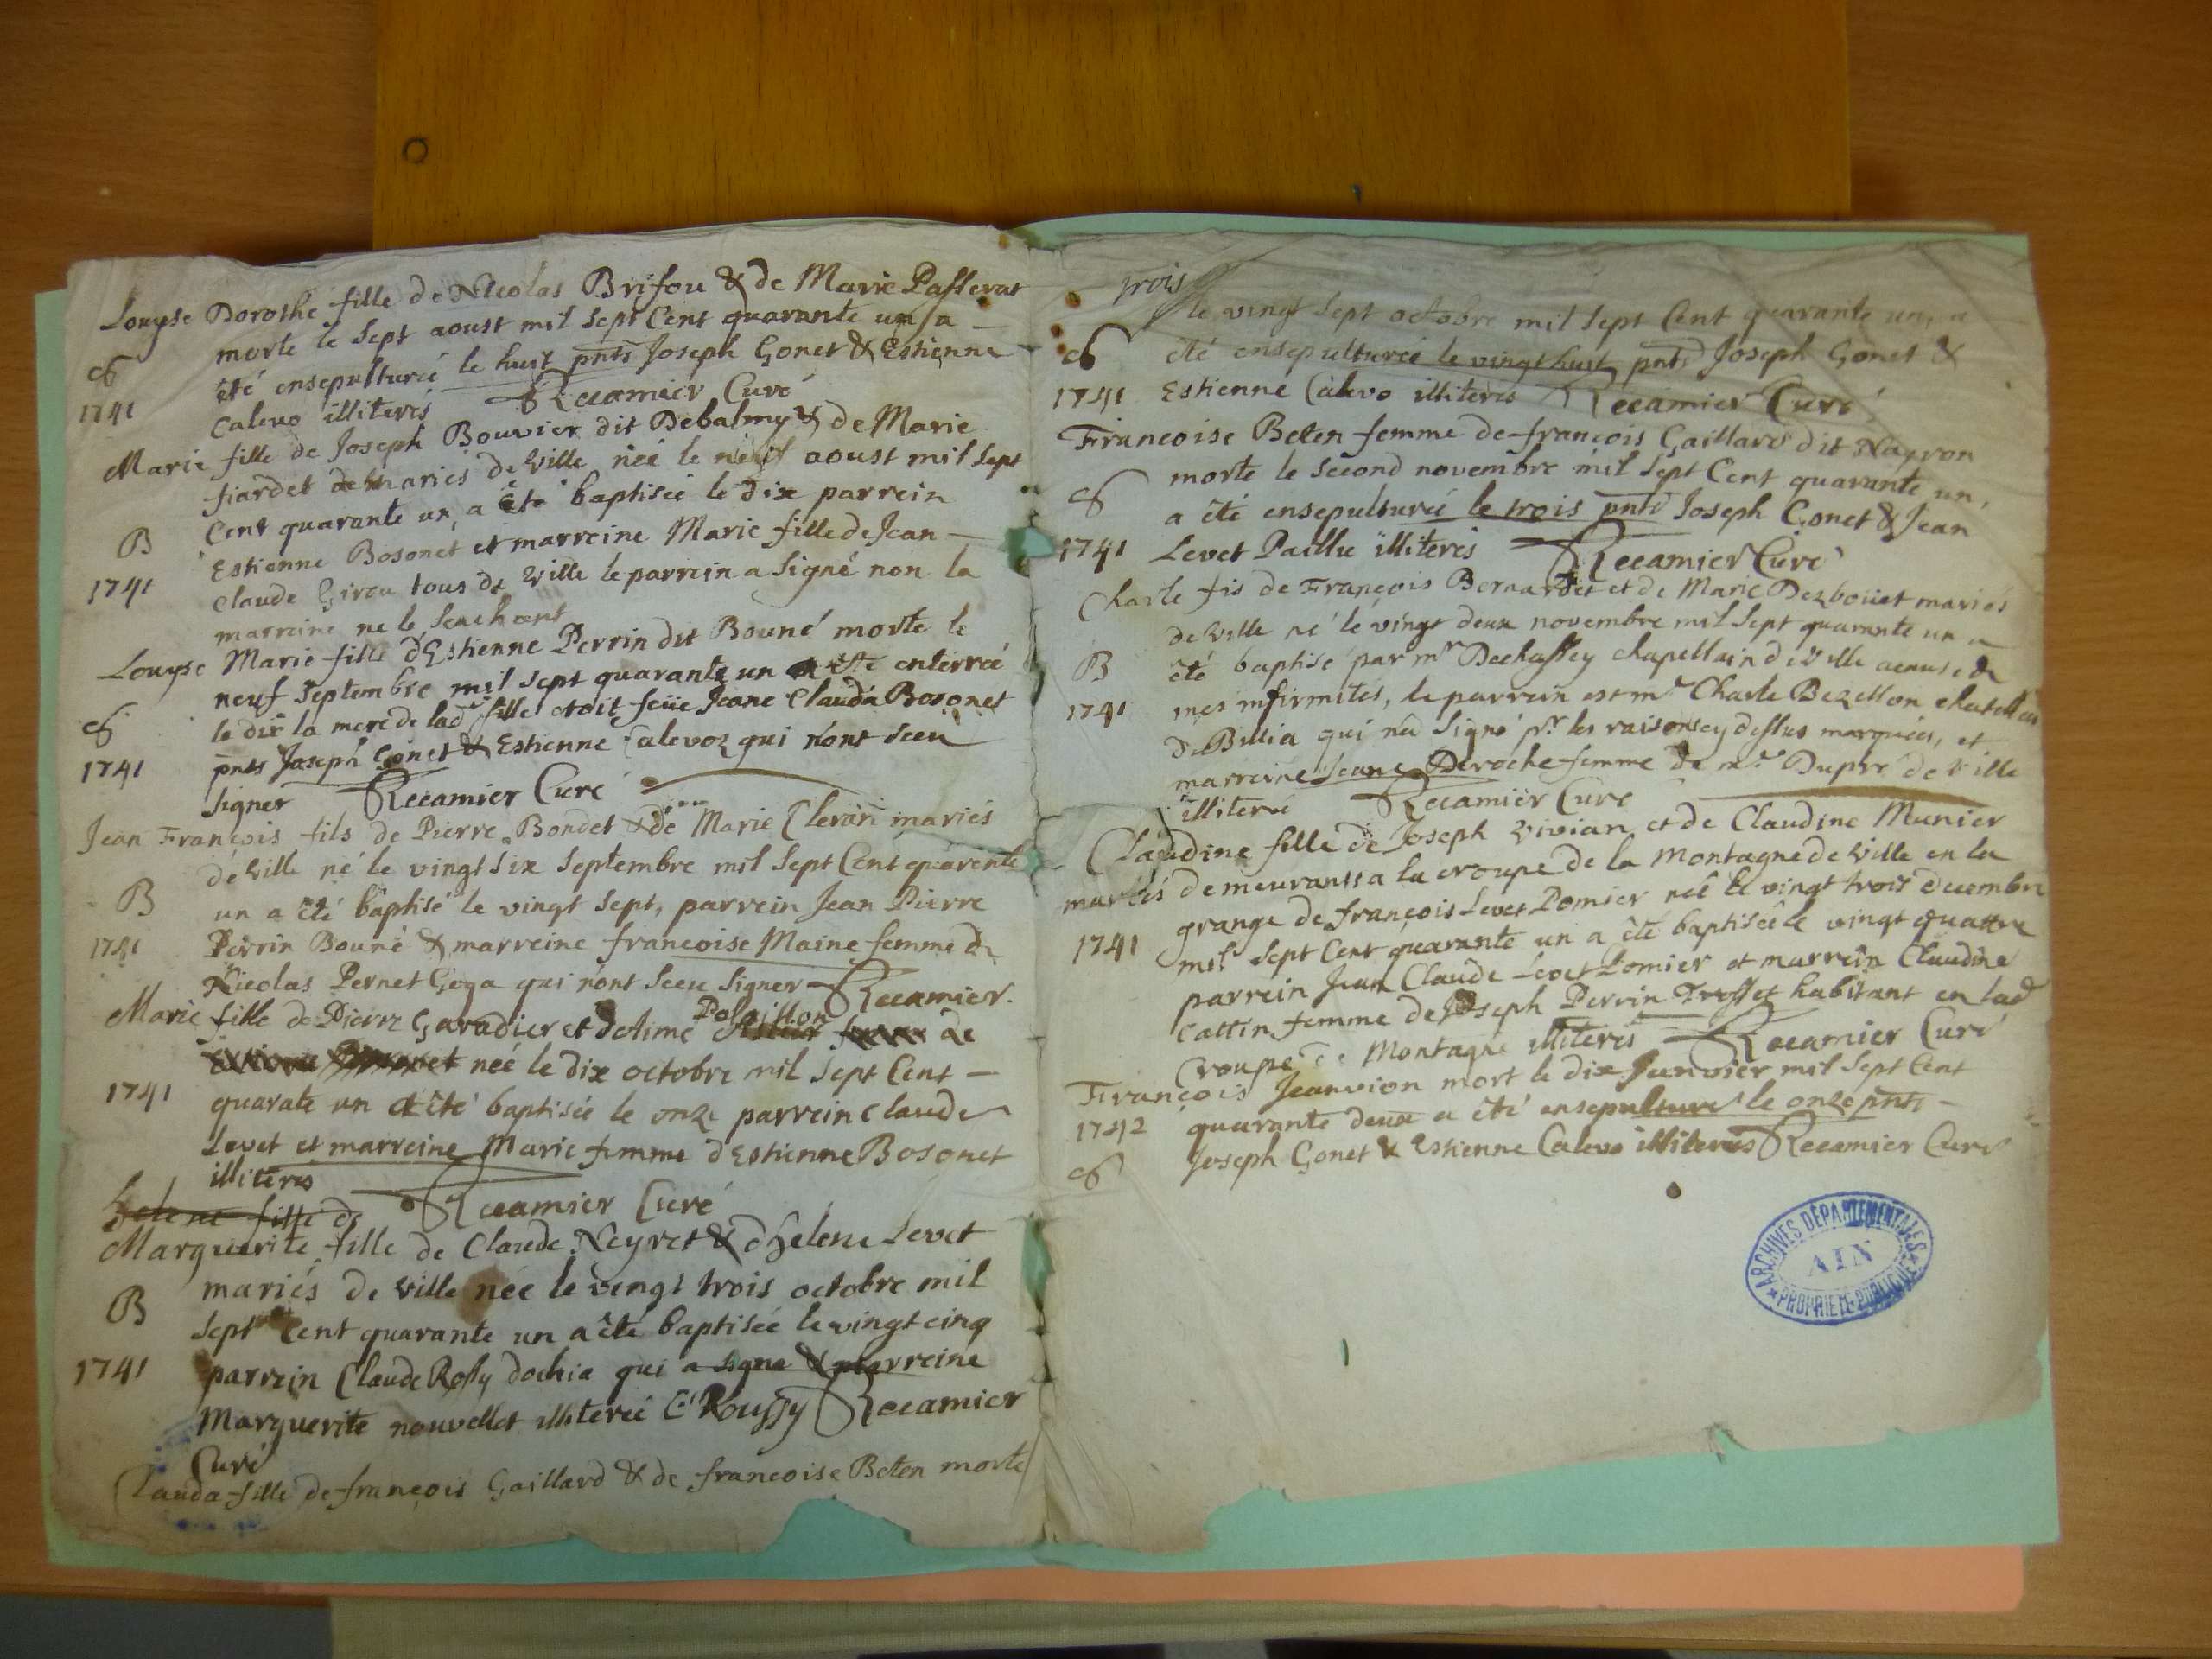 Louyse Dorothe fille de Nicolas Brifou & de Marie Passerat
morte le sept aoust mil sept Cent quarante un a
été ensepulturéé le huit pnts Joseph Gonet & Estienne
1741
Calevo illiterés Recamier Curé
Marie fille de Joseph Bouvier dit Debalmy & de Marie
fiardet mariés de Ville néé le neuf aoust mil sept
Cent quarante un a été baptiséé le dix parrein
B
Estienne Bosonet et marreine Marie fille de Jean
1741
Claude Girou tous de Ville le parrein a signé non la
marreine ne le scachant
Louyse Marie fille d'Estienne Perrin dit Bouné morte le
neuf septembre mil sept quarante un a été enterréé
le dix la mere de lad fille etoit feüe Jeane Clauda Bosonet
1741
pnts Joseph Gonet & Estienne Calevoz qui n'ont sceu
signer Recamier Curé
Jean François fils de Pierre Bondet & de Marie Clerari mariés
de Ville né le vingt six septembre mil sept Cent quarente
B
un a été baptisé le vingt sept, parrein Jean Pierre
1741
Perrin Bouné & marreine francoise Maine femme de
Nicolas Pernet Goga qui n'ont sceu signer Recamier
Marie fille de Pierre Garadier et d'Aimé Polaillon
néé le dix octobre mil sept Cent
1741
quarate un a été baptiséé le onze parrein Claude
Levet et marreine Marie femme d'Estienne Bosonet
illiterés Recamier Curé
Helene fille de
Marguerite fille de Claude Neyret & d'helene Levet
mariés de Ville néé le vengt trois octobre mil
B
sept Cent quarante un a été baptiséé le vingt cinq
1741
parrein Claude Rossy dochia qui a signé & marreine
Marguerite nouvellet illiteréé C Roussy Recamier
Curé
Clauda fille de françois Gaillard & de francoise Beten morte
trois
le vingt sept octobre mil sept Cent quarante un, a
été ensepulturéé le vingt huit pnts Joseph Gonet &
1741
Estienne Calevo illiterés Recamier Curé
Francoise Beten femme de françois Gaillard dit Nayron
morte le second novembre mil sept Cent quarante un,
a été ensepulturéé le trois pnts Joseph Gonet & Jean
1741
Levet Paillu illiterés Recamier Curé
Charle fis de François Bernardet et de Marie Dezboüet mariés
de Ville né le vingt deux novembre mil sept quarante un a
B
été baptisé par mr Dechassey chapellain de Ville acause de
1741
mes infirmités, le parrein est mr Charle Bezellon chatellain
de Billia qui n'a signé pr les raisons cy dessus marquéés, et
marreine Jeane Deroche femme de mr Dupré de Ville
illiteréé Recamier Curé
Claudine fille de Joseph Vivian et de Claudine Munier
mariés demeurants a la croupe de la Montagne de Ville en la
grange de françois Levet Pomier néé le vingt trois decembre
1741
mil sept Cent quarante un a été baptiséé le vingt quattre
parrein Jean Claude Levet Pomier et marrein Claudine
Cattin femme de Joseph Perrin habitant en lad
Croupe de Montagne illiterés Recamier Curé
François Jeanvion mort le dix Janvier mil sept Cent
1742
quarante deux a été ensepulturé le onze pnts
Joseph Gonet & Estienne Calevo illiterés Recamier Curé
ARCHIVES DÉPARTEMENTALES
AIN
PROPRIÉTÉ PUBLIQUE